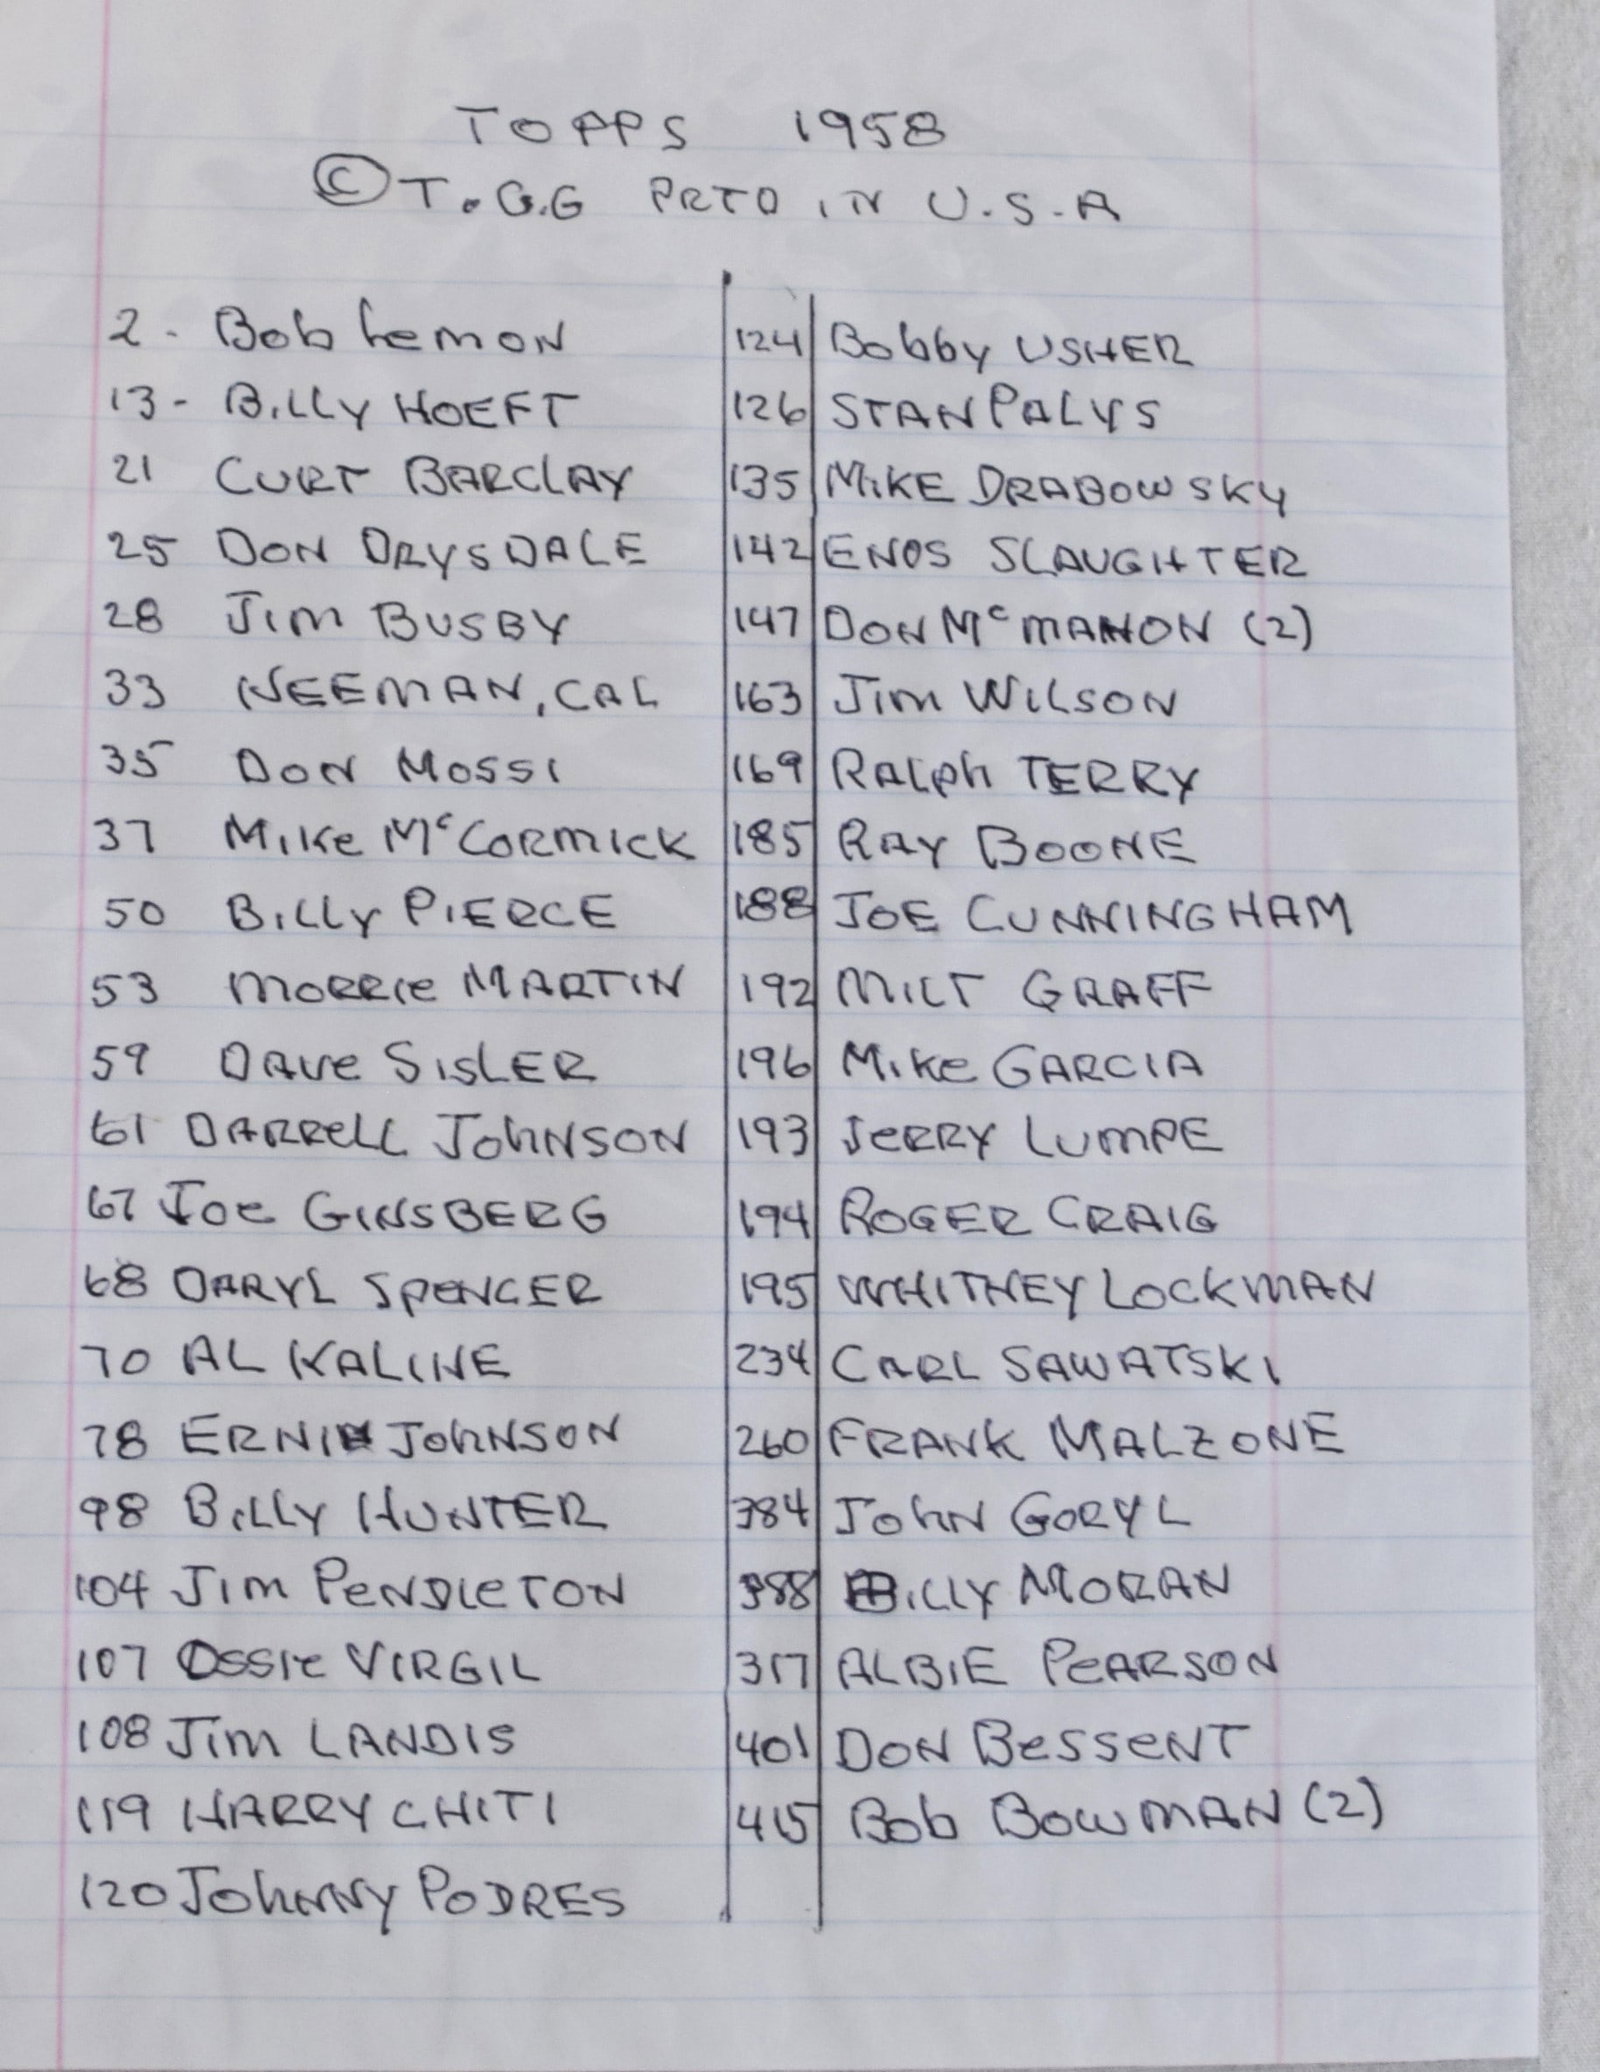 TOPPS 1958
© T.C.G PRTD IN U.S.A
2 - Bob Lemon
13 - Billy HOEFT
21 CURT BARCLAY
25 DON DRYSDALE
28 Jim BUSBY
33 NEEMAN, CAL
35 DON MOSSI
37 Mike McCORMICK
50 Billy PIERCE
53 MORRIE MARTIN
59 DAVE SISLER
61 DARRELL JOHNSON
67 JOE GINSBERG
68 DARYL SPENCER
70 AL KALINE
78 ERNIE JOHNSON
98 Billy HUNTER
104 Jim PENDLETON
107 OSSIE VIRGIL
108 Jim LANDIS
119 HARRY CHITI
120 JOHNNY PODRES
124 Bobby USHER
126 STAN PALYS
135 MIKE DRABOWSKY
142 ENOS SLAUGHTER
147 DON McMAHON (2)
163 Jim WILSON
169 RALPH TERRY
185 RAY BOONE
188 JOE CUNNINGHAM
192 MILT GRAFF
196 Mike GARCIA
193 JERRY LUMPE
194 ROGER CRAIG
195 WHITNEY LOCKMAN
234 CARL SAWATSKI
260 FRANK MALZONE
384 JOHN GORYL
388 BILLY MORAN
317 ALBIE PEARSON
401 DON BESSENT
415 Bob BOWMAN (2)